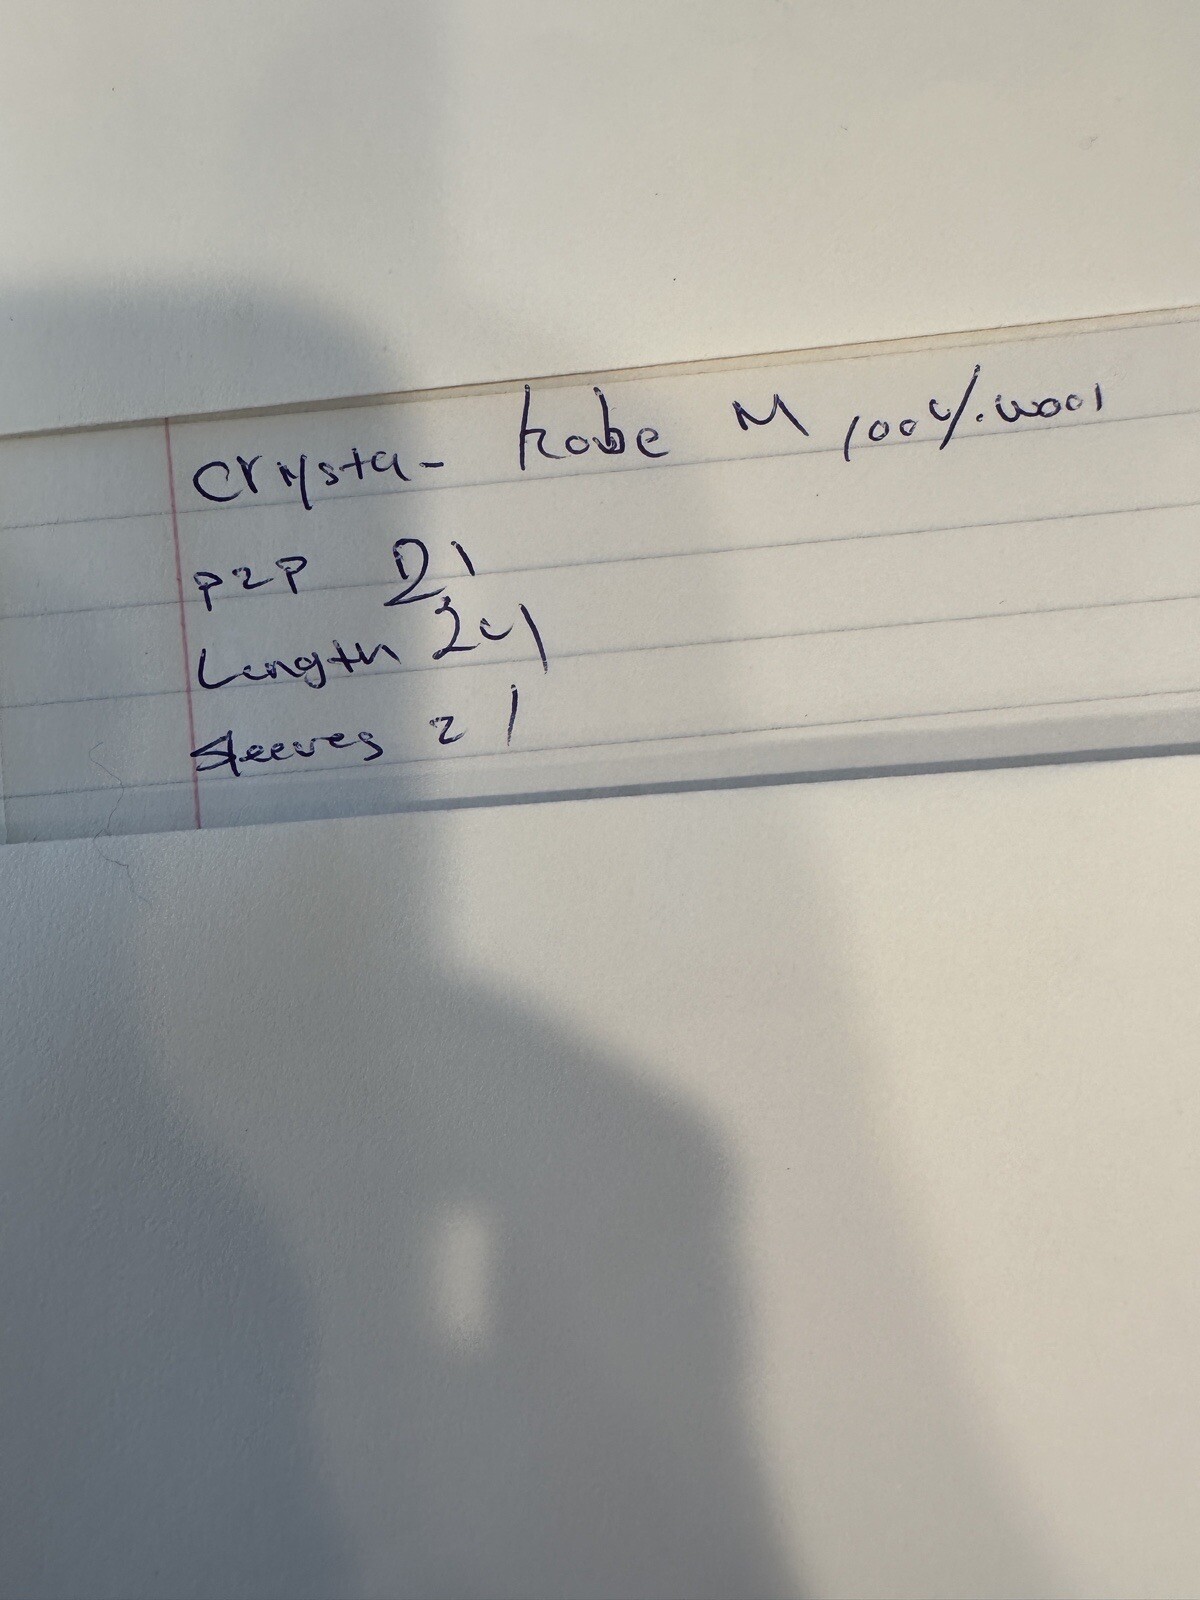 Crysta- kobe M 100%.wool
P2P 21
Length 24
Sleeves 21